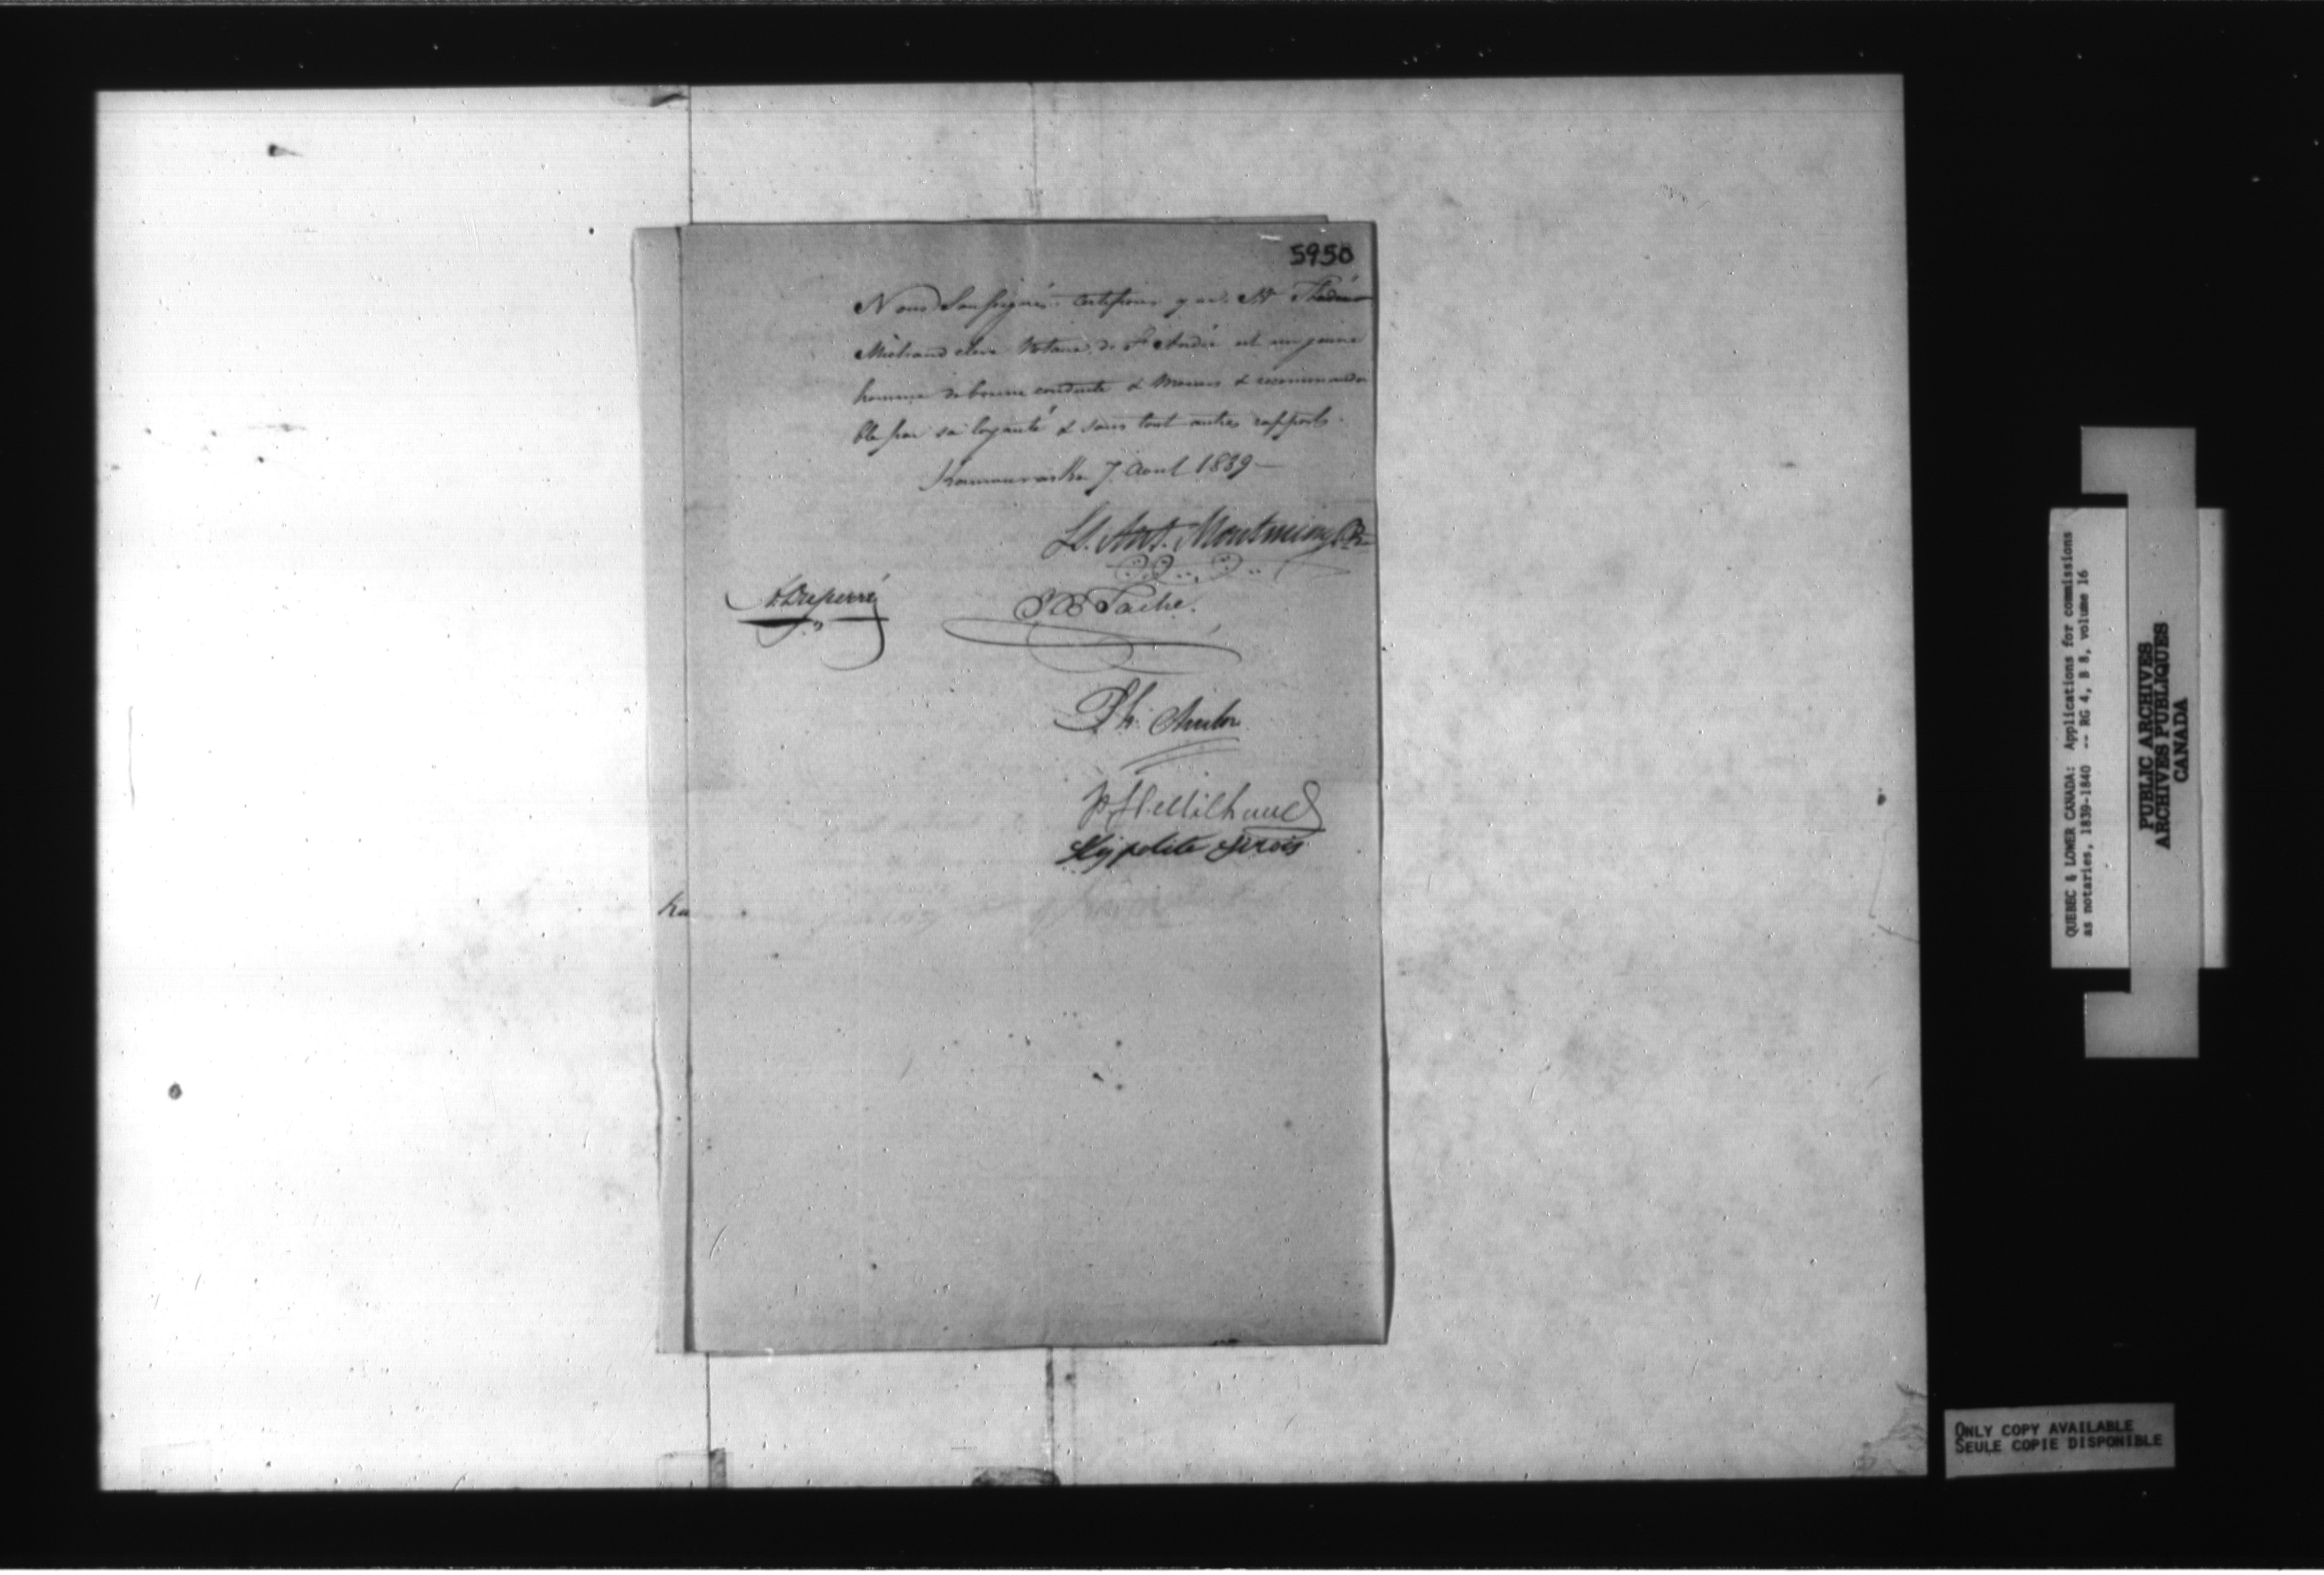 5950
Nous Soussignés certifions que Mr Thadée
Michaud eleve Notaire de St André est un jeune
homme de bonne conduite & Moeurs & recommanda
ble par sa loyauté & sous tout autres rapports.
Kamouraska 7 Aout 1839 —
Ls. Ant. Montminy Ptre
Duperré
Taché.
Ph.
Hypolite Sirois
QUEBEC & LOWER CANADA: Applications for commissions
as notaries, 1839-1840 -- RG 4, B 8, volume 16
PUBLIC ARCHIVES
ARCHIVES PUBLIQUES
CANADA
ONLY COPY AVAILABLE
SEULE COPIE DISPONIBLE